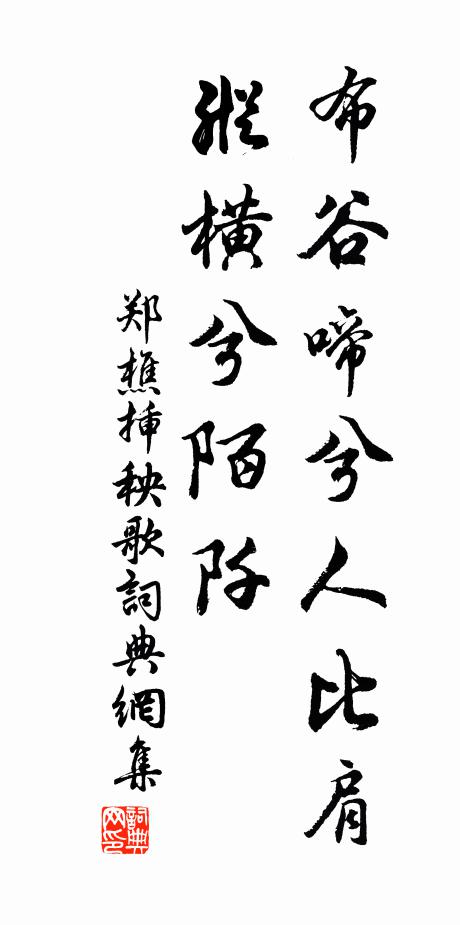 布谷啼兮人比肩
縱橫兮陌阡
郑樵插秧歌詞典網集
詞典网印